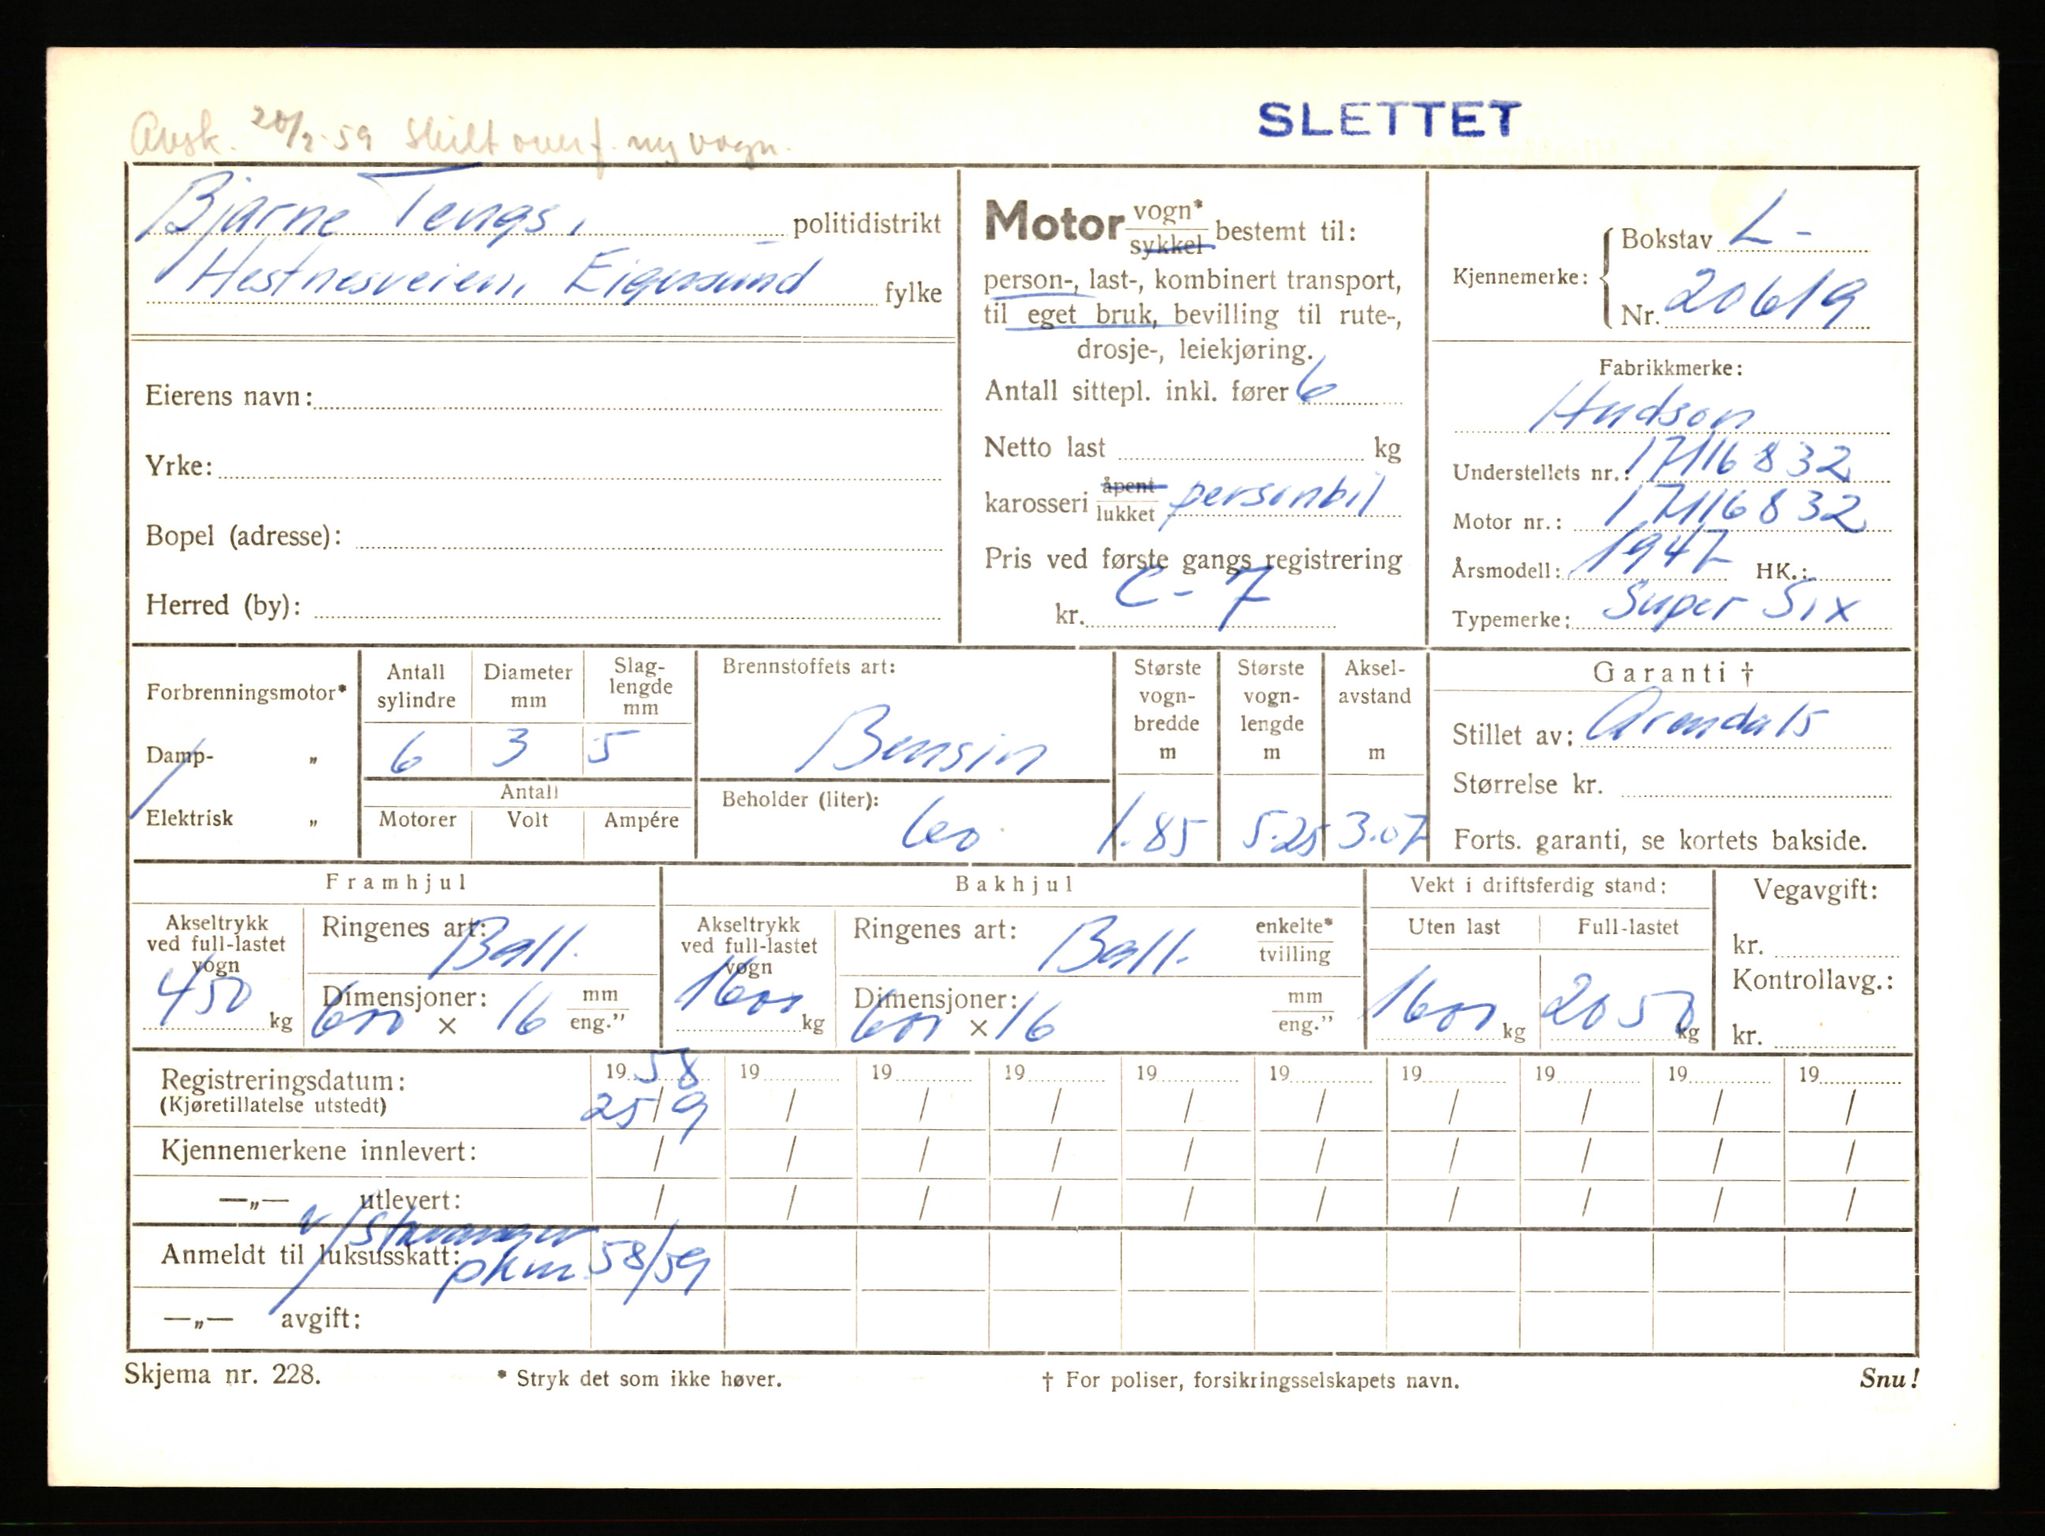 SLETTET
Avsk. 20/2-59 Skilt overf. ny vogn.
Bjarne Tengs, politidistrikt
Hestnesveien, Eigersund fylke
Eierens navn:
Yrke:
Bopel (adresse):
Herred (by):
Motor vogn* sykkel bestemt til:
person-, last-, kombinert transport,
til eget bruk, bevilling til rute-,
drosje-, leiekjøring.
Antall sittepl. inkl. fører 6
Netto last kg
karosseri åpent lukket personbil
Pris ved første gangs registrering
kr. C-7
Kjennemerke: Bokstav L-
Nr. 20619
Fabrikkmerke:
Hudson
Understellets nr.: 17116832
Motor nr.: 17116832
Årsmodell: 1947 HK.:
Typemerke: Super Six
Forbrenningsmotor*
Damp- „
Elektrisk „
Antall sylindre Diameter mm Slag-lengde mm
6 3 5
Antall
Motorer Volt Ampére
Brennstoffets art:
Bensin
Beholder (liter):
60
Største vogn-bredde m
1.85
Største vogn-lengde m
5.25
Aksel-avstand m
3.07
Garanti †
Stillet av: Arendals
Størrelse kr.
Forts. garanti, se kortets bakside.
Framhjul
Akseltrykk ved full-lastet vogn
450 kg
Ringenes art: Ball.
Dimensjoner: 600 × 16 mm eng."
Bakhjul
Akseltrykk ved full-lastet vogn
1600 kg
Ringenes art: Ball. enkelte* tvilling
Dimensjoner: 600 × 16 mm eng."
Vekt i driftsferdig stand:
Uten last Full-lastet
1600 kg 2050 kg
Vegavgift:
kr.
Kontrollavg.:
kr.
Registreringsdatum: 1958 19 19 19 19 19 19 19 19 19
(Kjøretillatelse utstedt) 25/9 / / / / / / / / /
Kjennemerkene innlevert: / / / / / / / / / /
—„— utlevert: / / / / / / / / / /
v/Stavanger
Anmeldt til luksusskatt: pkm 58/59
—„— avgift:
Skjema nr. 228. * Stryk det som ikke høver. † For poliser, forsikringsselskapets navn. Snu!